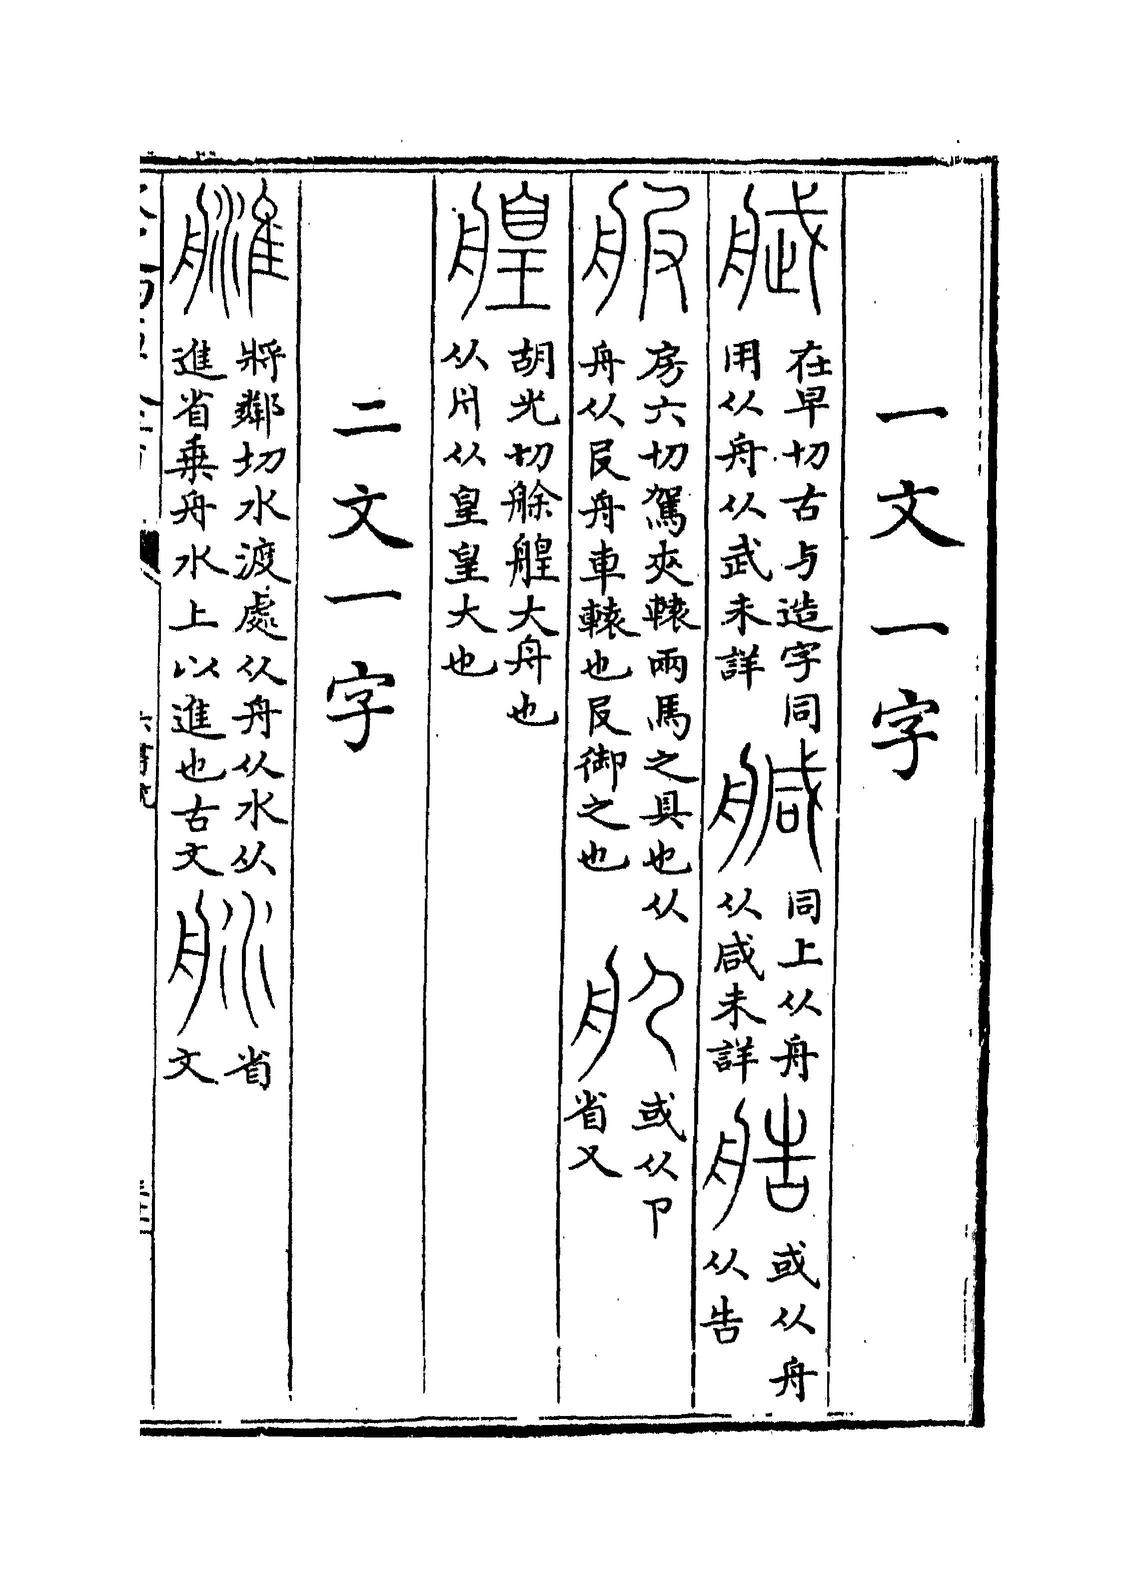 一文一字
在早切古与造字同
用从舟从武未詳
同上从舟
从咸未詳
艁
或从舟
从告
服
房六切駕夾轅兩馬之具也从
舟从𠬝舟車轅也𠬝御之也
或从卩
省又
艎
胡光切艅艎大舟也
从片从皇皇大也
二文一字
將鄰切水渡處从舟从水从
進省乗舟水上以進也古文
省
文